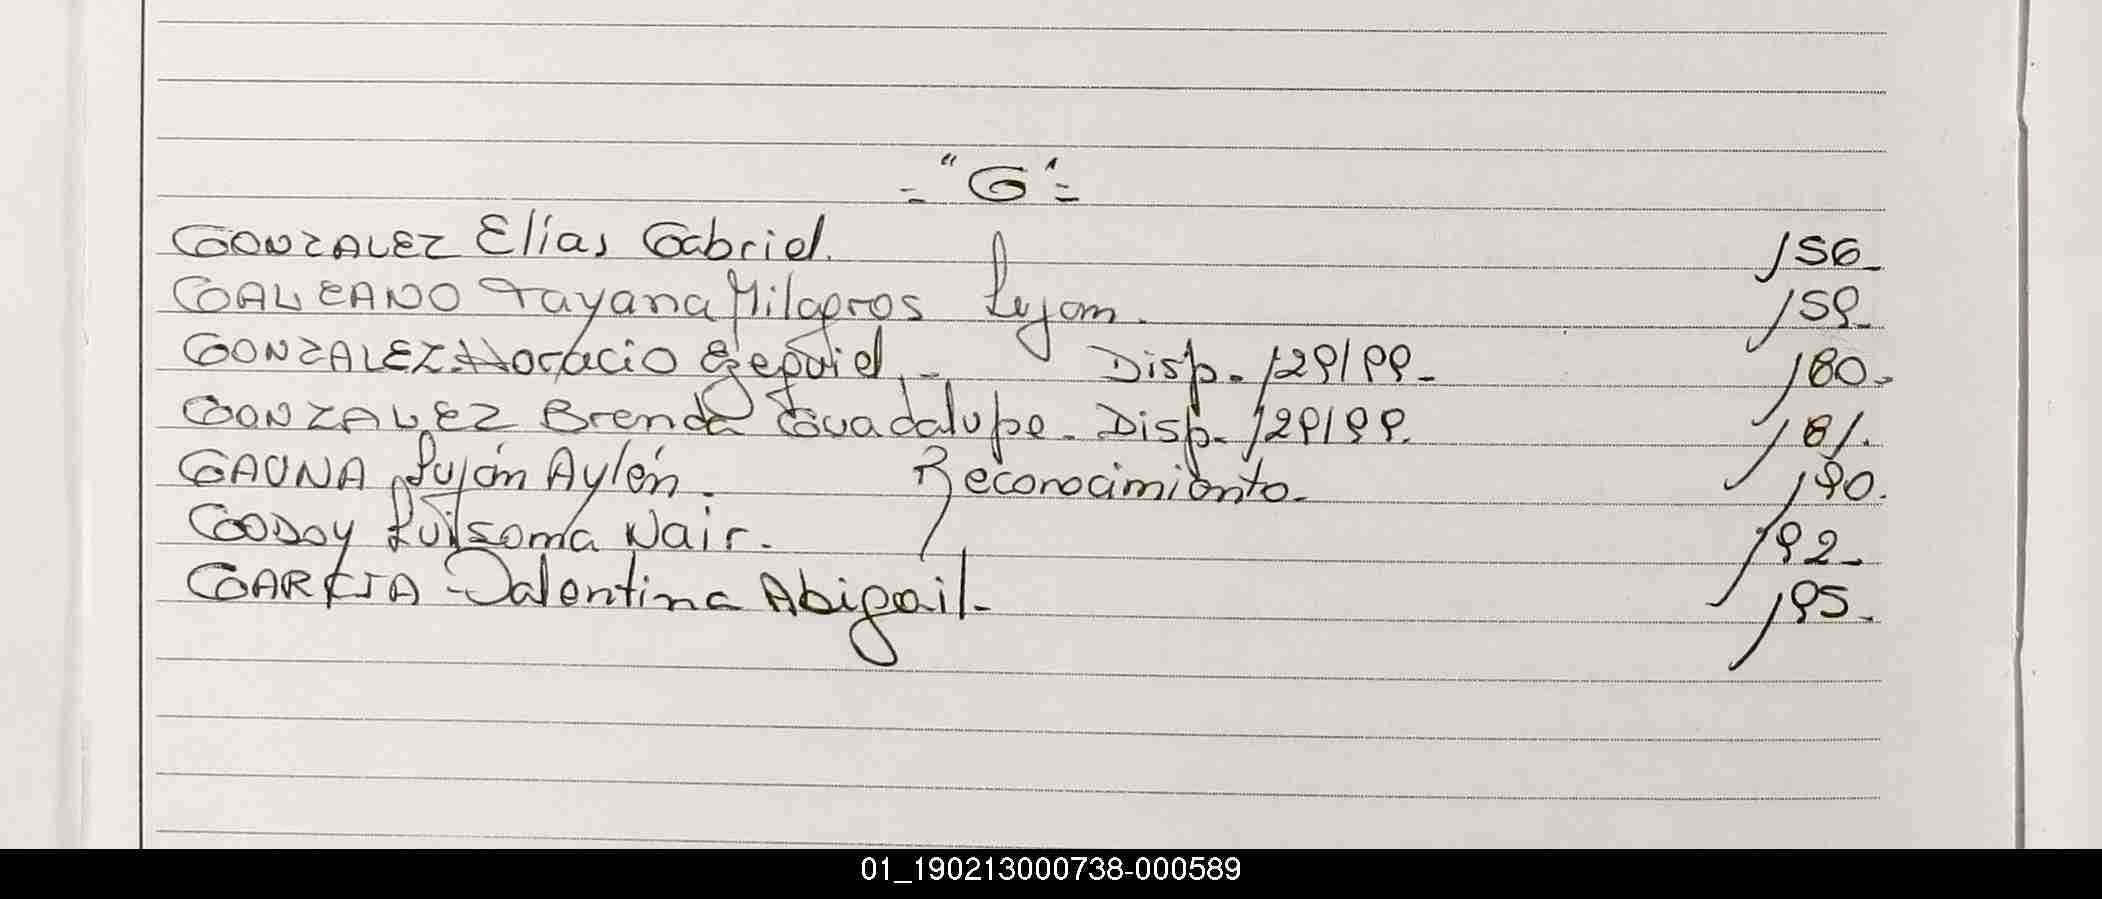 ="G"=
GONZALEZ Elías Gabriel. 156-
GALEANO Tayana Milagros Lujam. 159-
GONZALEZ Horacio Ezequiel.- Disp. 129/99- 180.
GONZALEZ Brenda Guadalupe. Disp. 129/99. 181.
GAUNA Luján Aylén. Reconocimiento. 190.
GODOY Nair. 192-
GARCIA Valentina Abigail- 195.
01_190213000738-000589